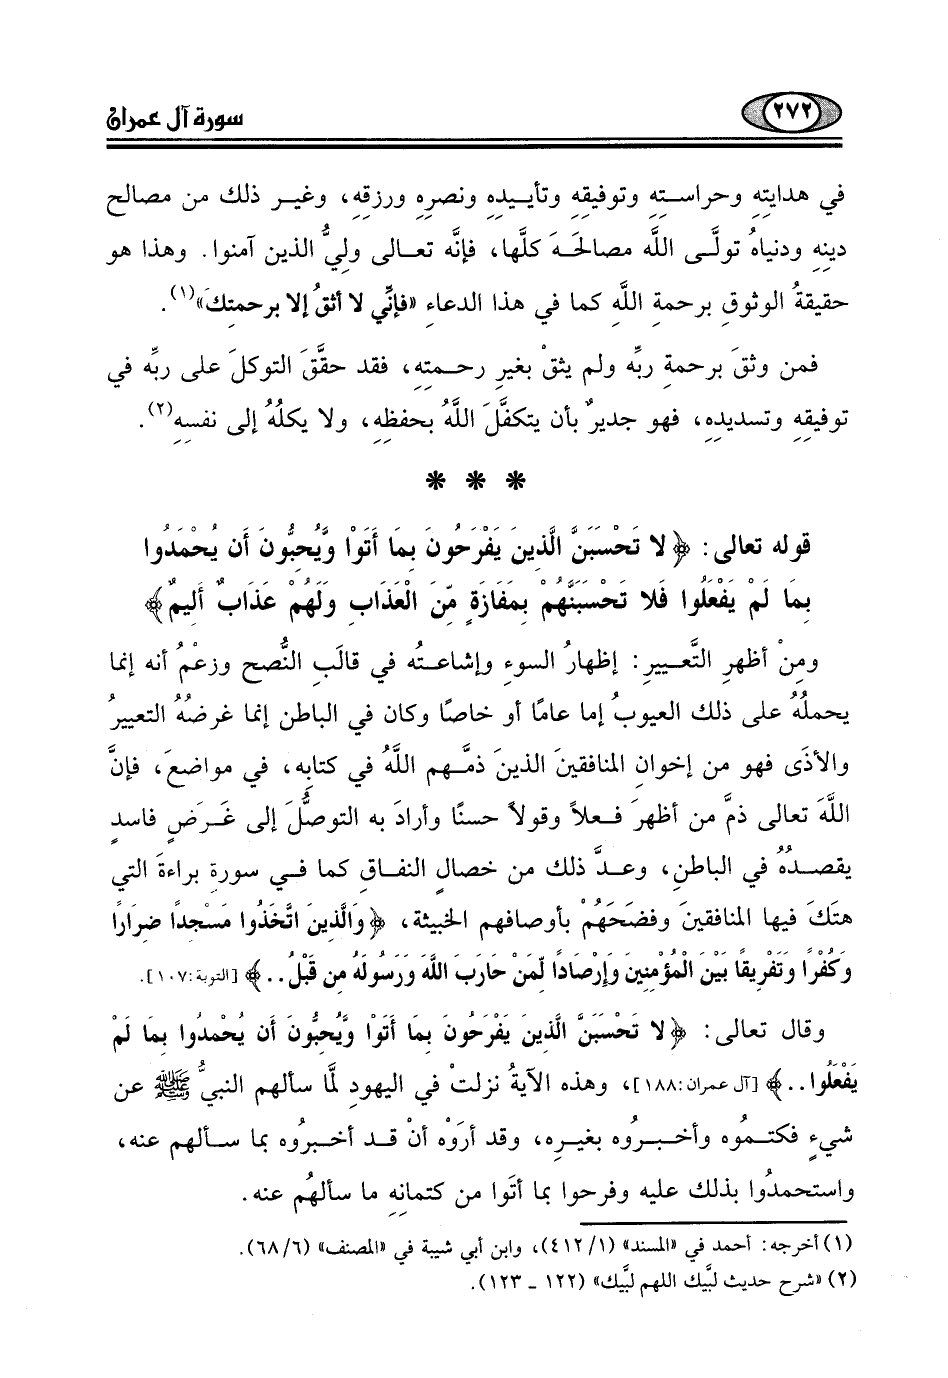 ٢٧٢ سورة آل عمران
في هدايتِهِ وحراستِهِ وتوفيقِهِ وتأييدِهِ ونصرِهِ ورزقِهِ، وغيرِ ذلك من مصالحِ
دينِهِ ودنياهُ تولَّى اللَّه مصالحَهَ كلَّها، فإنَّه تعالى وليُّ الذين آمنوا. وهذا هو
حقيقةُ الوثوقِ برحمةِ اللَّهِ كما في هذا الدعاءِ «فإنِّي لا أثقُ إلا برحمتكَ»(١).
فمن وثقَ برحمةِ ربِّه ولم يثقْ بغيرِ رحمتِهِ، فقد حقَّقَ التوكلَ على ربِّه في
توفيقِهِ وتسديدِهِ، فهو جديرٌ بأن يتكفَّلَ اللَّهُ بحفظِهِ، ولا يكلُهُ إلى نفسِهِ(٢).
* * *
قوله تعالى: ﴿لا تَحْسَبَنَّ الَّذِينَ يَفْرَحُونَ بِمَا أَتَوْا وَّيُحِبُّونَ أَن يُحْمَدُوا
بِمَا لَمْ يَفْعَلُوا فَلا تَحْسَبَنَّهُمْ بِمَفَازَةٍ مِّنَ الْعَذَابِ وَلَهُمْ عَذَابٌ أَلِيمٌ﴾
ومِنْ أظهرِ التَّعييرِ: إظهارُ السوءِ وإشاعتُه في قالَبِ النُّصحِ وزعْمُ أنه إنما
يحملُهُ على ذلك العيوبُ إما عامًا أو خاصًا وكان في الباطنِ إنما غرضُهُ التعييرُ
والأذَى فهو من إخوانِ المنافقينَ الذينَ ذمَّهم اللَّهُ في كتابِهِ، في مواضعَ، فإنَّ
اللَّهَ تعالى ذمَّ من أظهرَ فعلاً وقولاً حسنًا وأرادَ به التوصُّلَ إلى غَرَضٍ فاسدٍ
يقصدُهُ في الباطنِ، وعدَّ ذلك من خصالِ النفاقِ كما في سورةِ براءةَ التي
هتَكَ فيها المنافقينَ وفضَحَهُمْ بأوصافهم الخبيثة، ﴿وَالَّذِينَ اتَّخَذُوا مَسْجِدًا ضِرَارًا
وَكُفْرًا وَتَفْرِيقًا بَيْنَ الْمُؤْمِنِينَ وَإِرْصَادًا لِّمَنْ حَارَبَ اللَّهَ وَرَسُولَهُ مِن قَبْلُ..﴾ [التوبة: ١٠٧].
وقال تعالى: ﴿لا تَحْسَبَنَّ الَّذِينَ يَفْرَحُونَ بِمَا أَتَوْا وَّيُحِبُّونَ أَن يُحْمَدُوا بِمَا لَمْ
يَفْعَلُوا..﴾ [آل عمران: ١٨٨]، وهذه الآيةُ نزلتْ في اليهودِ لمَّا سألهم النبيُّ ﷺ عن
شيءٍ فكتمُوه وأخبرُوه بغيرِهِ، وقد أرَوْه أنْ قد أخبرُوه بما سألهم عنه،
واستحمدُوا بذلك عليه وفرحوا بما أتَوا من كتمانِهِ ما سألهُم عنه.
(١) أخرجه: أحمد في «المسند» (١/ ٤١٢)، وابن أبي شيبة في «المصنف» (٦/ ٦٨).
(٢) «شرح حديث لبَّيك اللهم لبَّيك» (١٢٢ ـ ١٢٣).